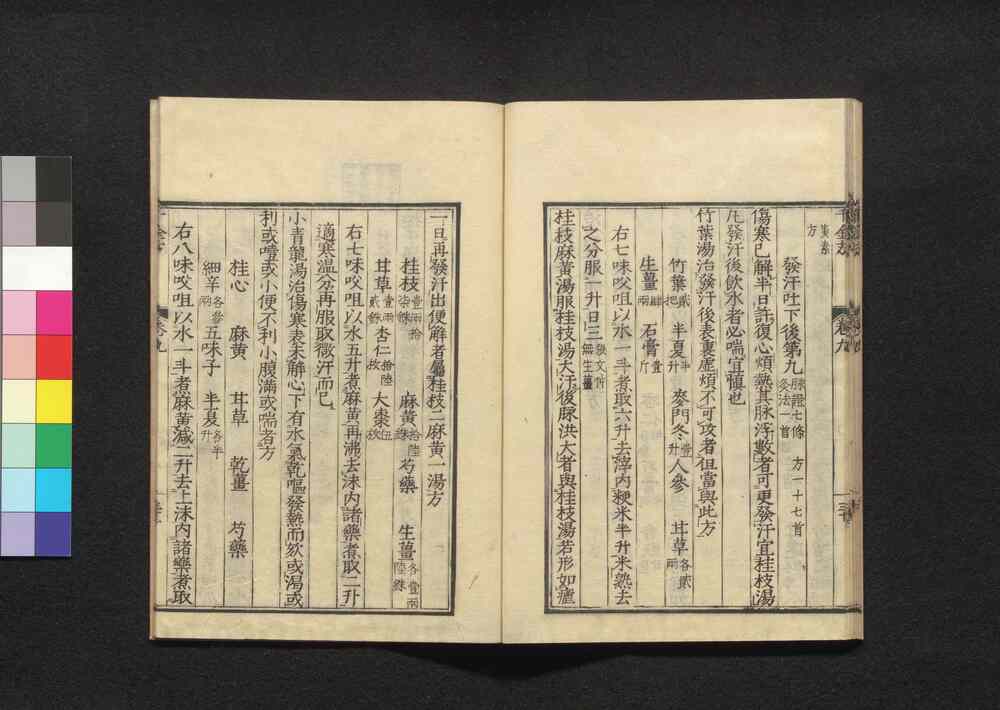 方
發汗吐下後第九 脉證七條 灸法一首 方一十七首
傷寒已解半日許復心煩熱其脉浮數者可更發汗宜桂枝湯
凡發汗後飲水者必喘宜慎也
竹葉湯治發汗後表裏虛煩不可攻者但當與此方
竹葉貳把 半夏半升 麥門冬壹升 人參 甘草各貳兩
生薑肆兩 石膏壹斤
右七味㕮咀以水一斗煮取六升去滓内粳米半升米熟去
之分服一升日三
桂枝麻黃湯服桂枝湯大汗後脉洪大者與桂枝湯若形如瘧
一旦再發汗出便解者屬桂枝二麻黃一湯方
桂枝壹兩拾柒銖 麻黃拾陸銖 芍藥 生薑各壹兩陸銖
甘草壹兩貳銖 杏仁拾陸枚 大棗伍枚
右七味㕮咀以水五升煮麻黃再沸去沫内諸藥煮取二升
適寒溫分再服取微汗而已
小青龍湯治傷寒表未解心下有水氣乾嘔發熱而欬或渴或
利或噎或小便不利小腹滿或喘者方
桂心 麻黃 甘草 乾薑 芍藥
細辛各叁兩 五味子 半夏各半升
右八味㕮咀以水一斗煮麻黃減二升去上沫内諸藥煮取
卷九